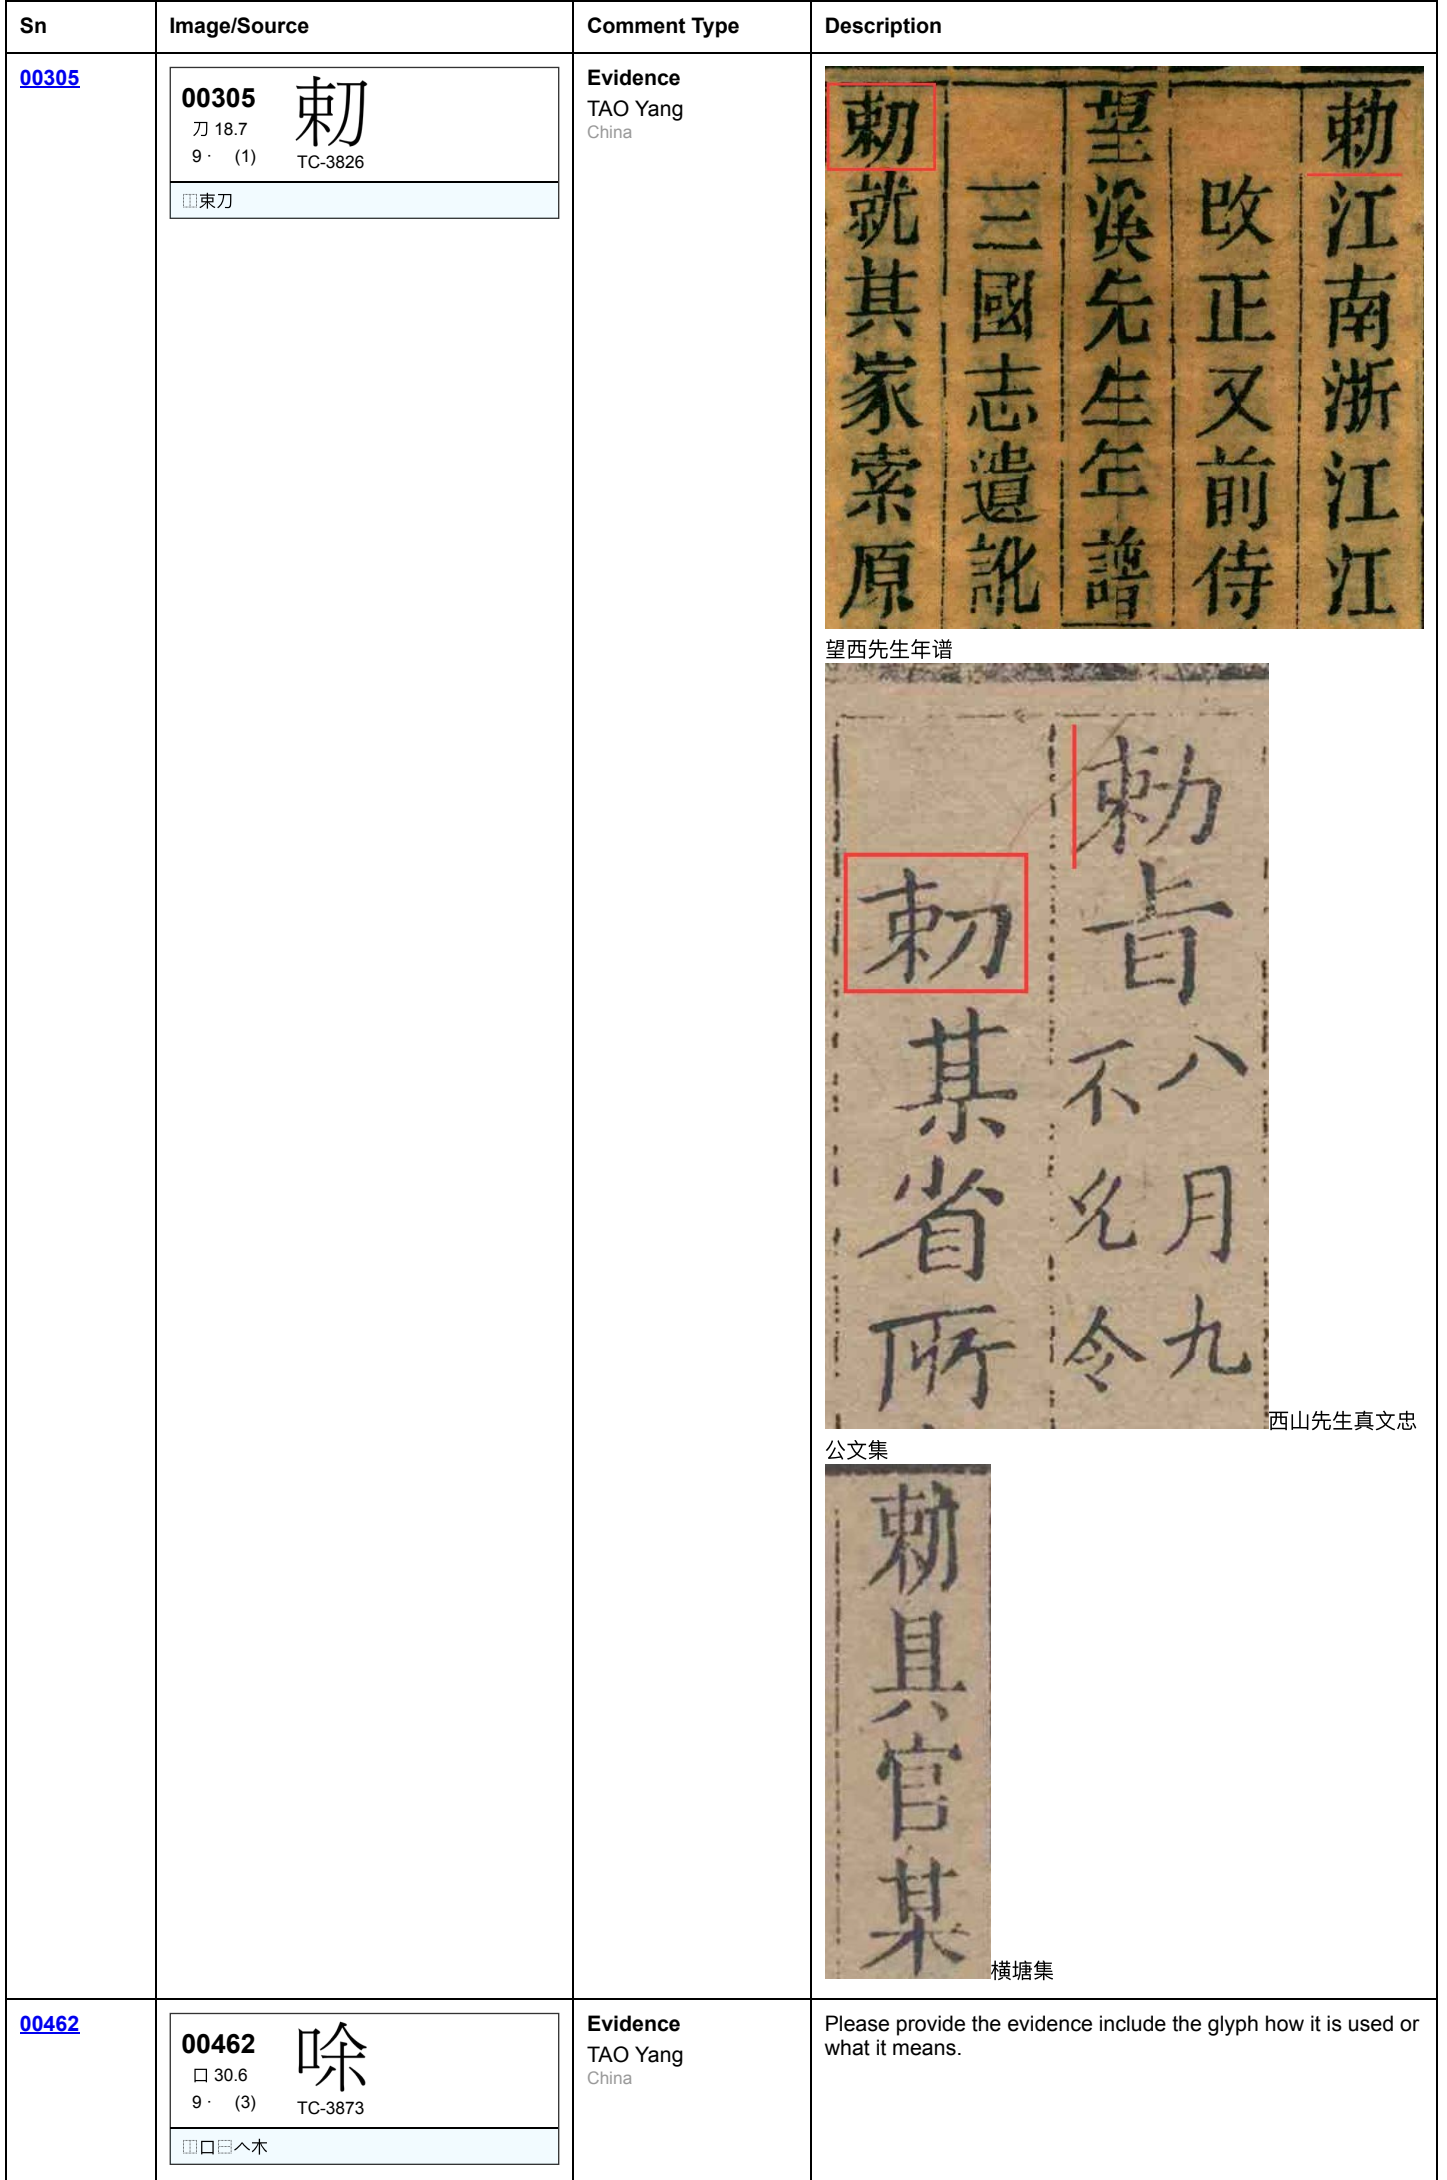 Sn Image/Source Comment Type Description
00305
00305
刀 18.7
9 · (1)
TC-3826
⿰束刀
Evidence
TAO Yang
China
勅江南浙江江
改正又前侍
望溪先生年譜
三國志遺訛
⿰束刀就其家索原
望西先生年谱
勅旨八月九
不允令
⿰束刀某省所
西山先生真文忠
公文集
勅具官某
横塘集
00462
00462
口 30.6
9 · (3)
TC-3873
⿰口⿱𠆢木
Evidence
TAO Yang
China
Please provide the evidence include the glyph how it is used or
what it means.